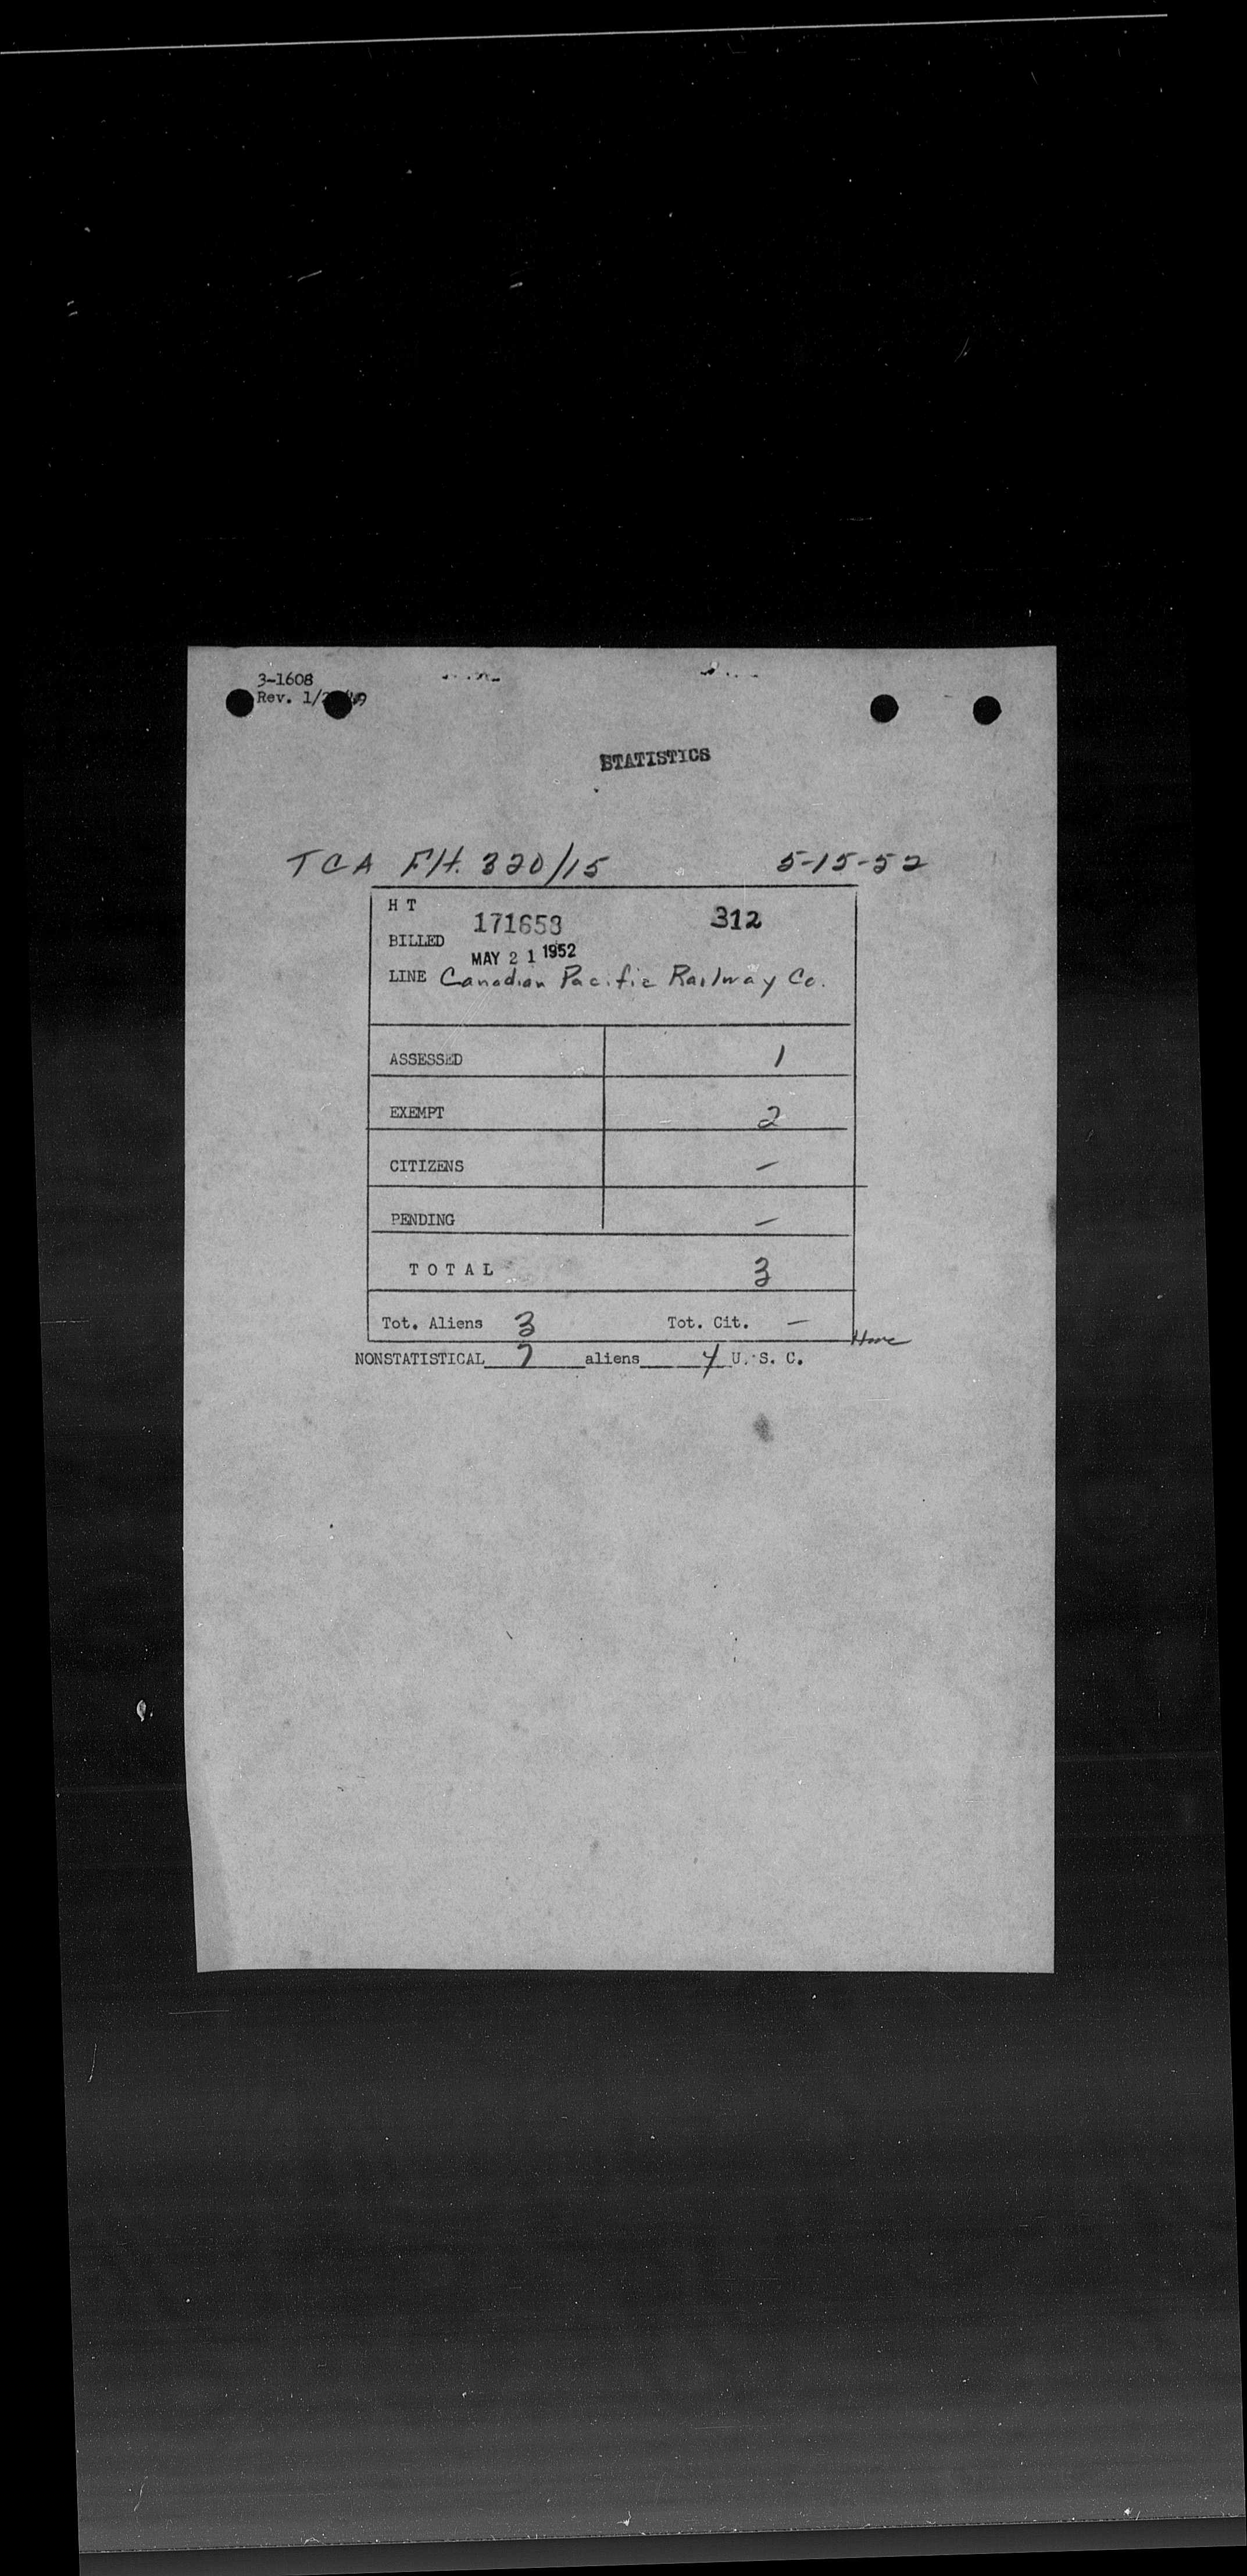 3-1608
Rev. 1/
STATISTICS
TCA Flt. 320/15 5-15-52
H T
171653 312
BILLED
MAY 21 1952
LINE Canadian Pacific Railway Co.
ASSESSED 1
EXEMPT 2
CITIZENS –
PENDING –
TOTAL 3
Tot. Aliens 3 Tot. Cit. –
NONSTATISTICAL 7 aliens 4 U. S. C.